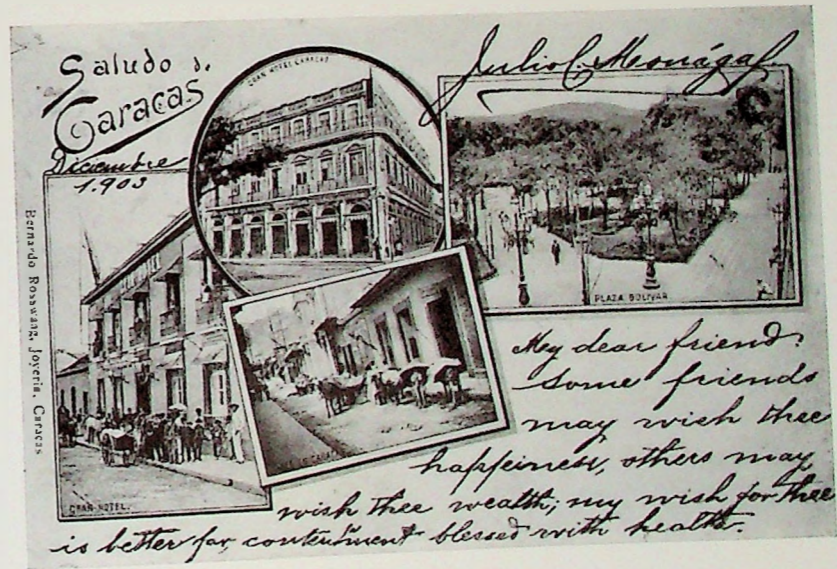 Saludo de
Caracas
Diciembre
1.903
Julio C. Monágas.
GRAN HOTEL CARACAS
PLAZA BOLIVAR
GRAN HOTEL.
Bernardo Rosswaag, Joyeria, Caracas
My dear friend:
Some friends
may wish thee
happiness, others may
wish thee wealth; my wish for thee
is better far, contentment blessed with health.